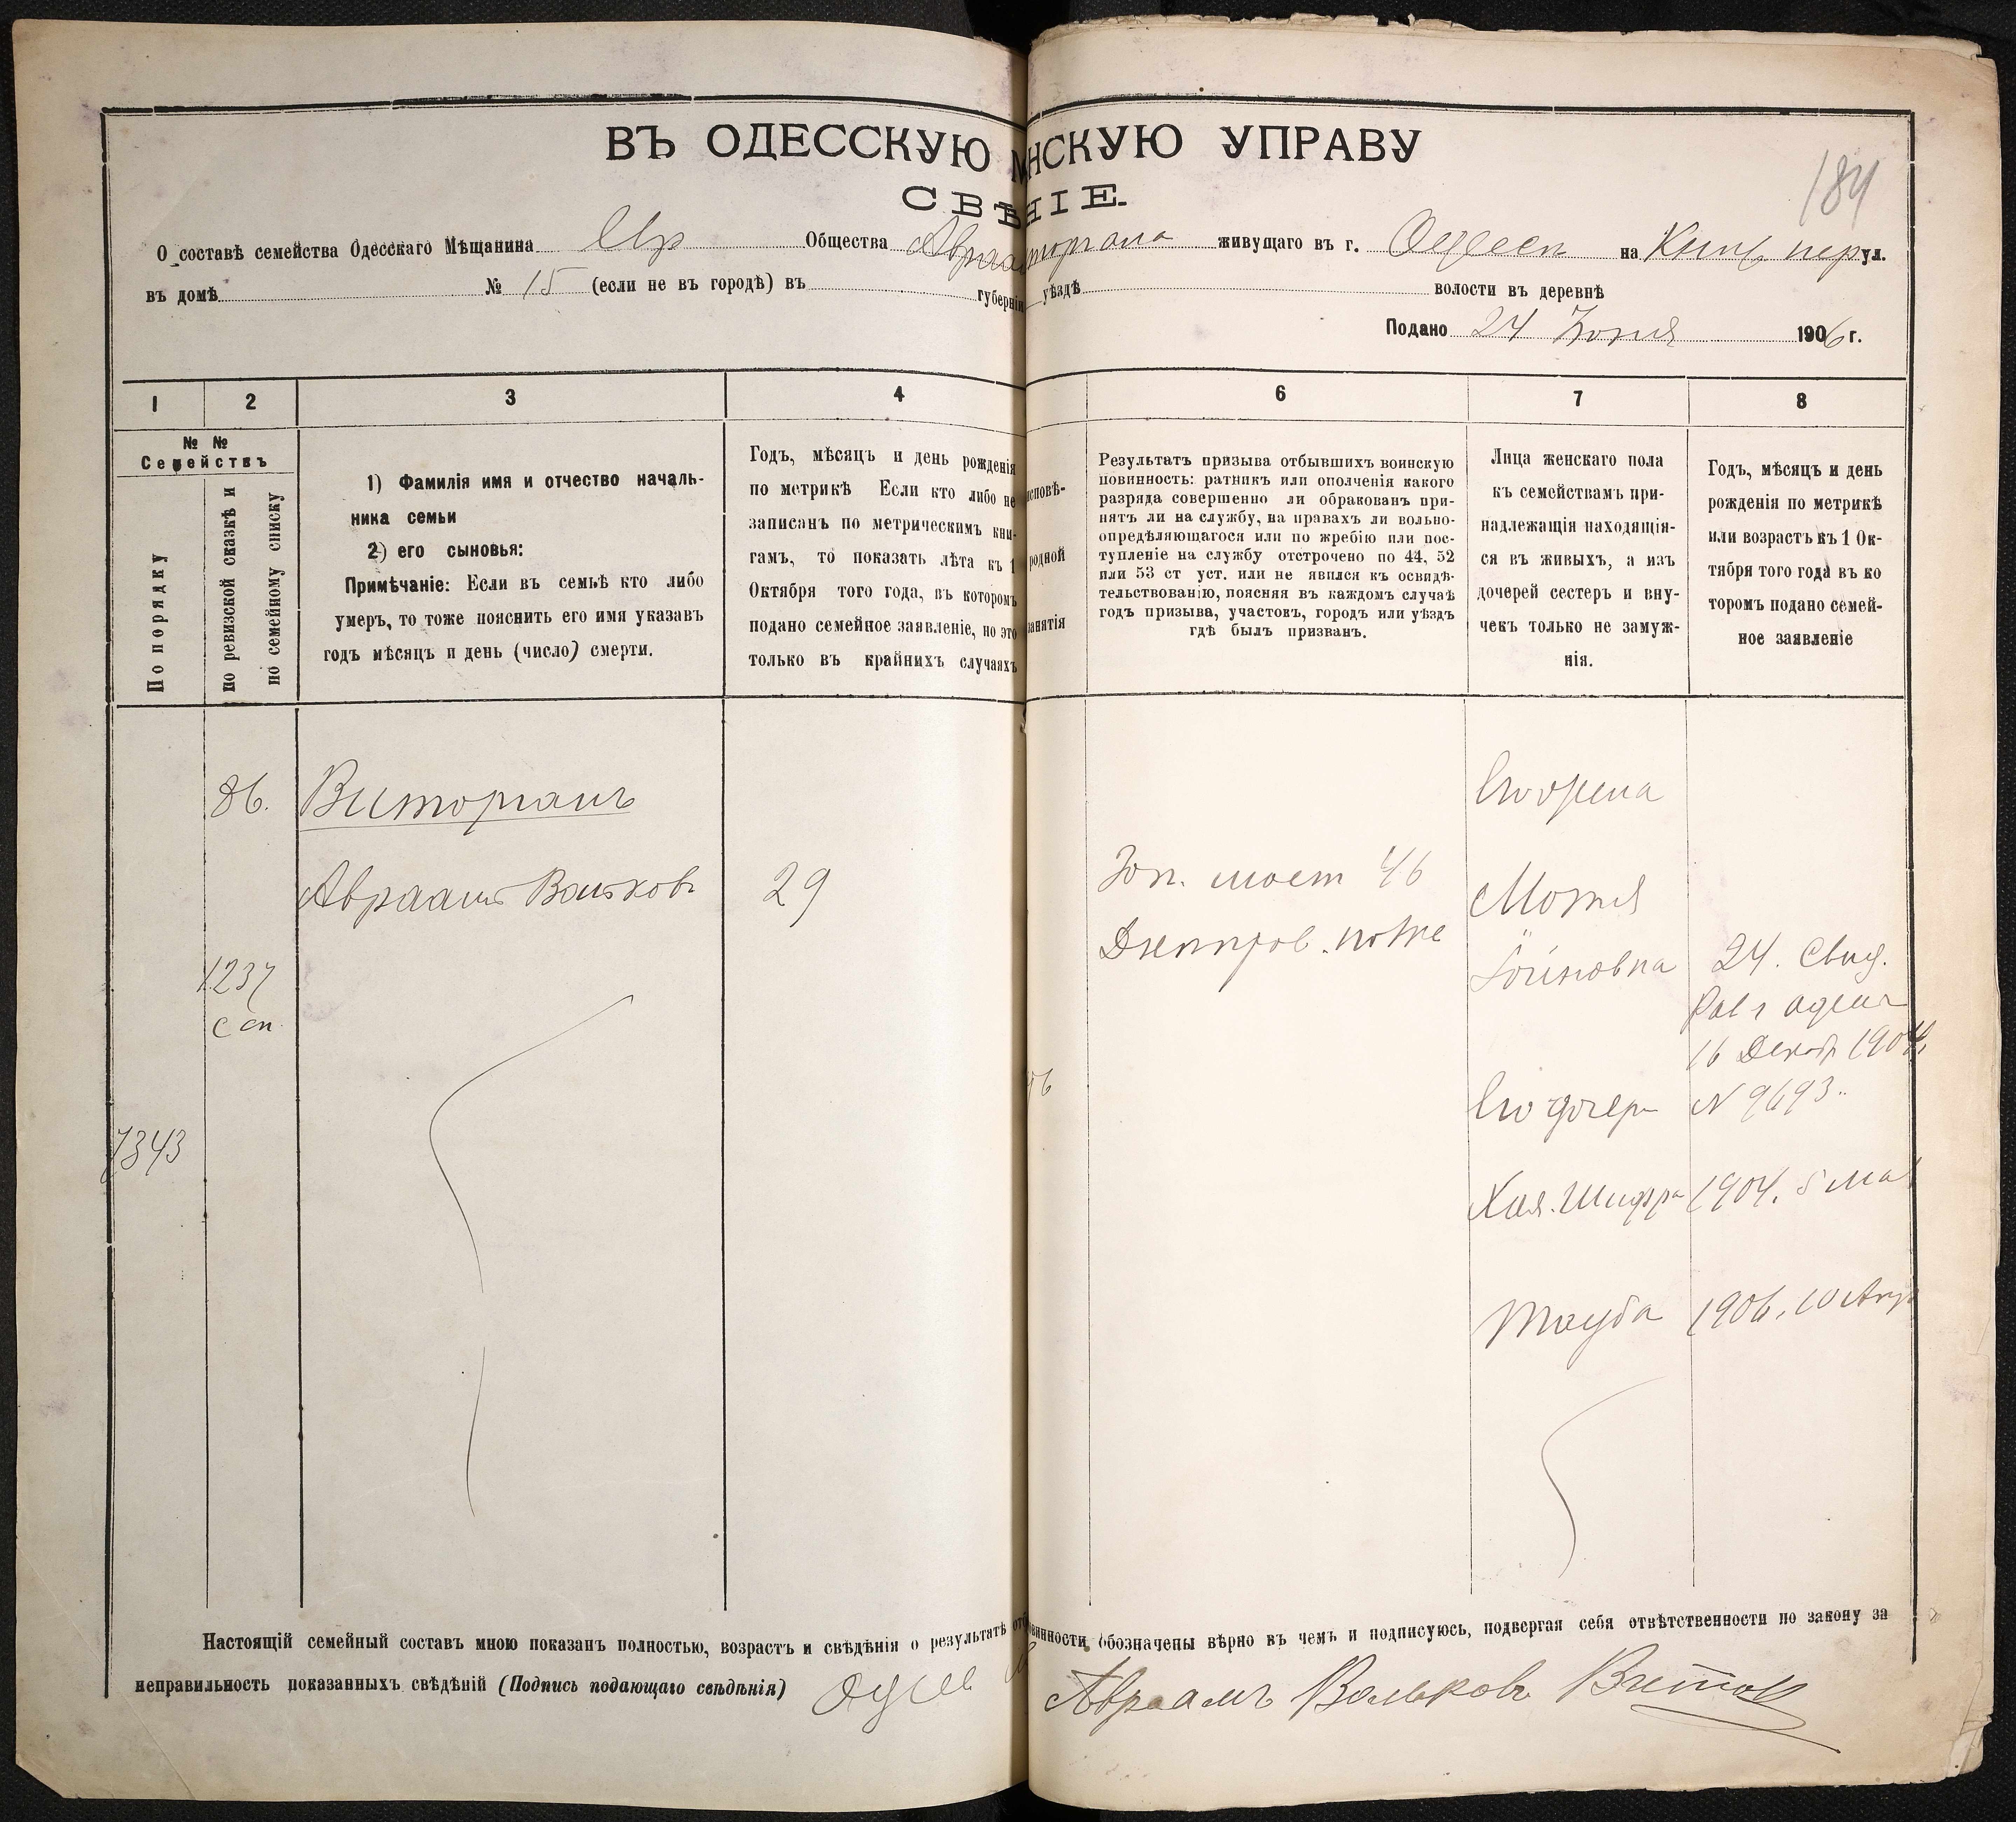 ВЪ ОДЕССКУЮ НСКУЮ УПРАВУ
СВѢНІЕ.
184
О составѣ семейства Одесскаго Мѣщанина Евр Общества живущаго въ г. Одессѣ на пер ул.
въ домѣ № 15 (если не въ городѣ) въ губерніи уѣздѣ волости въ деревнѣ
Подано 24 Іюня 1906 г.
1 2 3 4 6 7 8
№ № Семействъ
По порядку
по ревизской сказкѣ и
по семейному списку
1) Фамилія имя и отчество началь-
ника семьи
2) его сыновья:
Примѣчаніе: Если въ семьѣ кто либо
умеръ, то тоже пояснить его имя указавъ
годъ мѣсяцъ и день (число) смерти.
Годъ, мѣсяцъ и день рожденія
по метрикѣ Если кто либо не
записанъ по метрическимъ кни-
гамъ, то показать лѣта къ 1
Октября того года, въ которомъ
подано семейное заявленіе, но это
только въ крайнихъ случаяхъ
исповѣ-
родной
занятія
Результатъ призыва отбывшихъ воинскую
повинность: ратникъ или ополченія какого
разряда совершенно ли обракованъ при-
нятъ ли на службу, на правахъ ли вольно-
опредѣляющагося или по жребію или пос-
тупленіе на службу отстрочено по 44, 52
или 53 ст уст. или не явился къ освидѣ-
тельствованію, поясняя въ каждомъ случаѣ
годъ призыва, участовъ, городъ или уѣздъ
гдѣ былъ призванъ.
Лица женскаго пола
къ семействамъ при-
надлежащія находящія-
ся въ живыхъ, а изъ
дочерей сестеръ и вну-
чекъ только не замуж-
нія.
Годъ, мѣсяцъ и день
рожденія по метрикѣ
или возрастъ къ 1 Ок-
тября того года въ ко
торомъ подано семей-
ное заявленіе
86. Виторганъ
Его жена
Авраамъ Вольковъ 29
Мотля
1237
24. Свид.
Рав г Одессы
16 Декаб 1904
Его дочери № 9693
7343
Хая-Шифра 1904. 5 Мая
Тауба 1906. 10 Апр
Настоящій семейный составъ мною показанъ полностью, возрастъ и свѣдѣнія о результатѣ винности обозначены вѣрно въ чемъ и подписуюсь, подвергая себя отвѣтственности по закону за
неправильность показанныхъ свѣдѣній (Подпись подающаго свѣдѣнія) Авраамъ Вольковъ